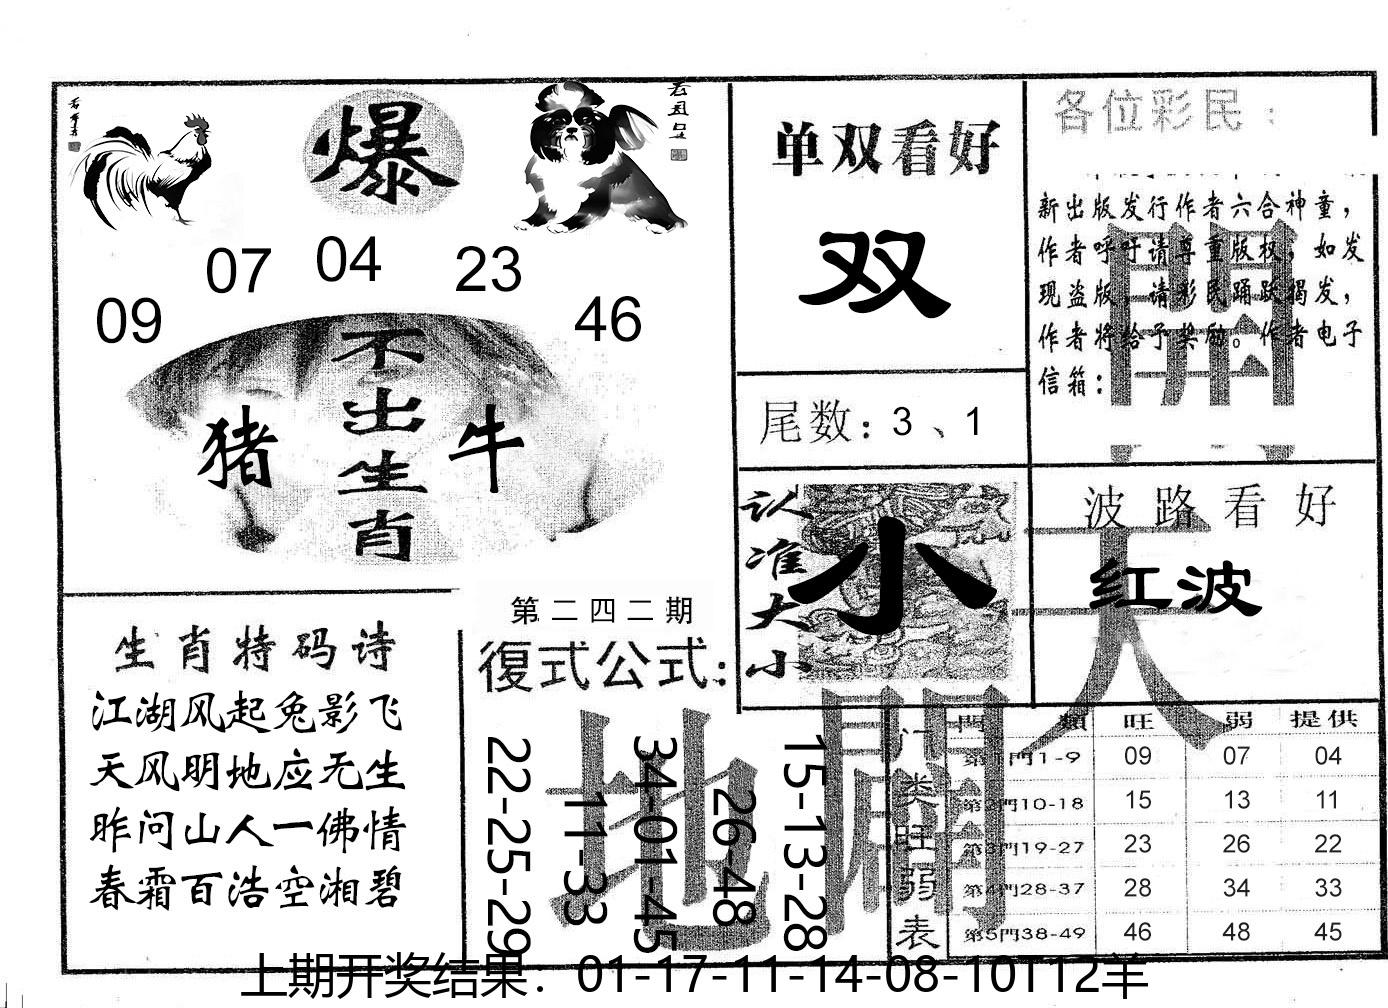 爆
07 04 23
09 46
不出生肖
猪 牛
单双看好
双
尾数：3、1
各位彩民：
新出版发行作者六合神童，
作者呼吁请尊重版权，如发
现盗版，请彩民踊跃揭发，
作者将给予奖励。作者电子
信箱：
開
认准大小
小
波路看好
红波
天
生肖特码诗
江湖风起兔影飞
天风明地应无生
昨问山人一佛情
春霜百浩空湘碧
第二四二期
復式公式：
22-25-29
11-33
34-01-45
26-48
15-13-28
地
門類 旺 弱 提供
门类旺弱表
第1門1-9 09 07 04
第2門10-18 15 13 11
第3門19-27 23 26 22
第4門28-37 28 34 33
第5門38-49 46 48 45
上期开奖结果：01-17-11-14-08-10T12羊